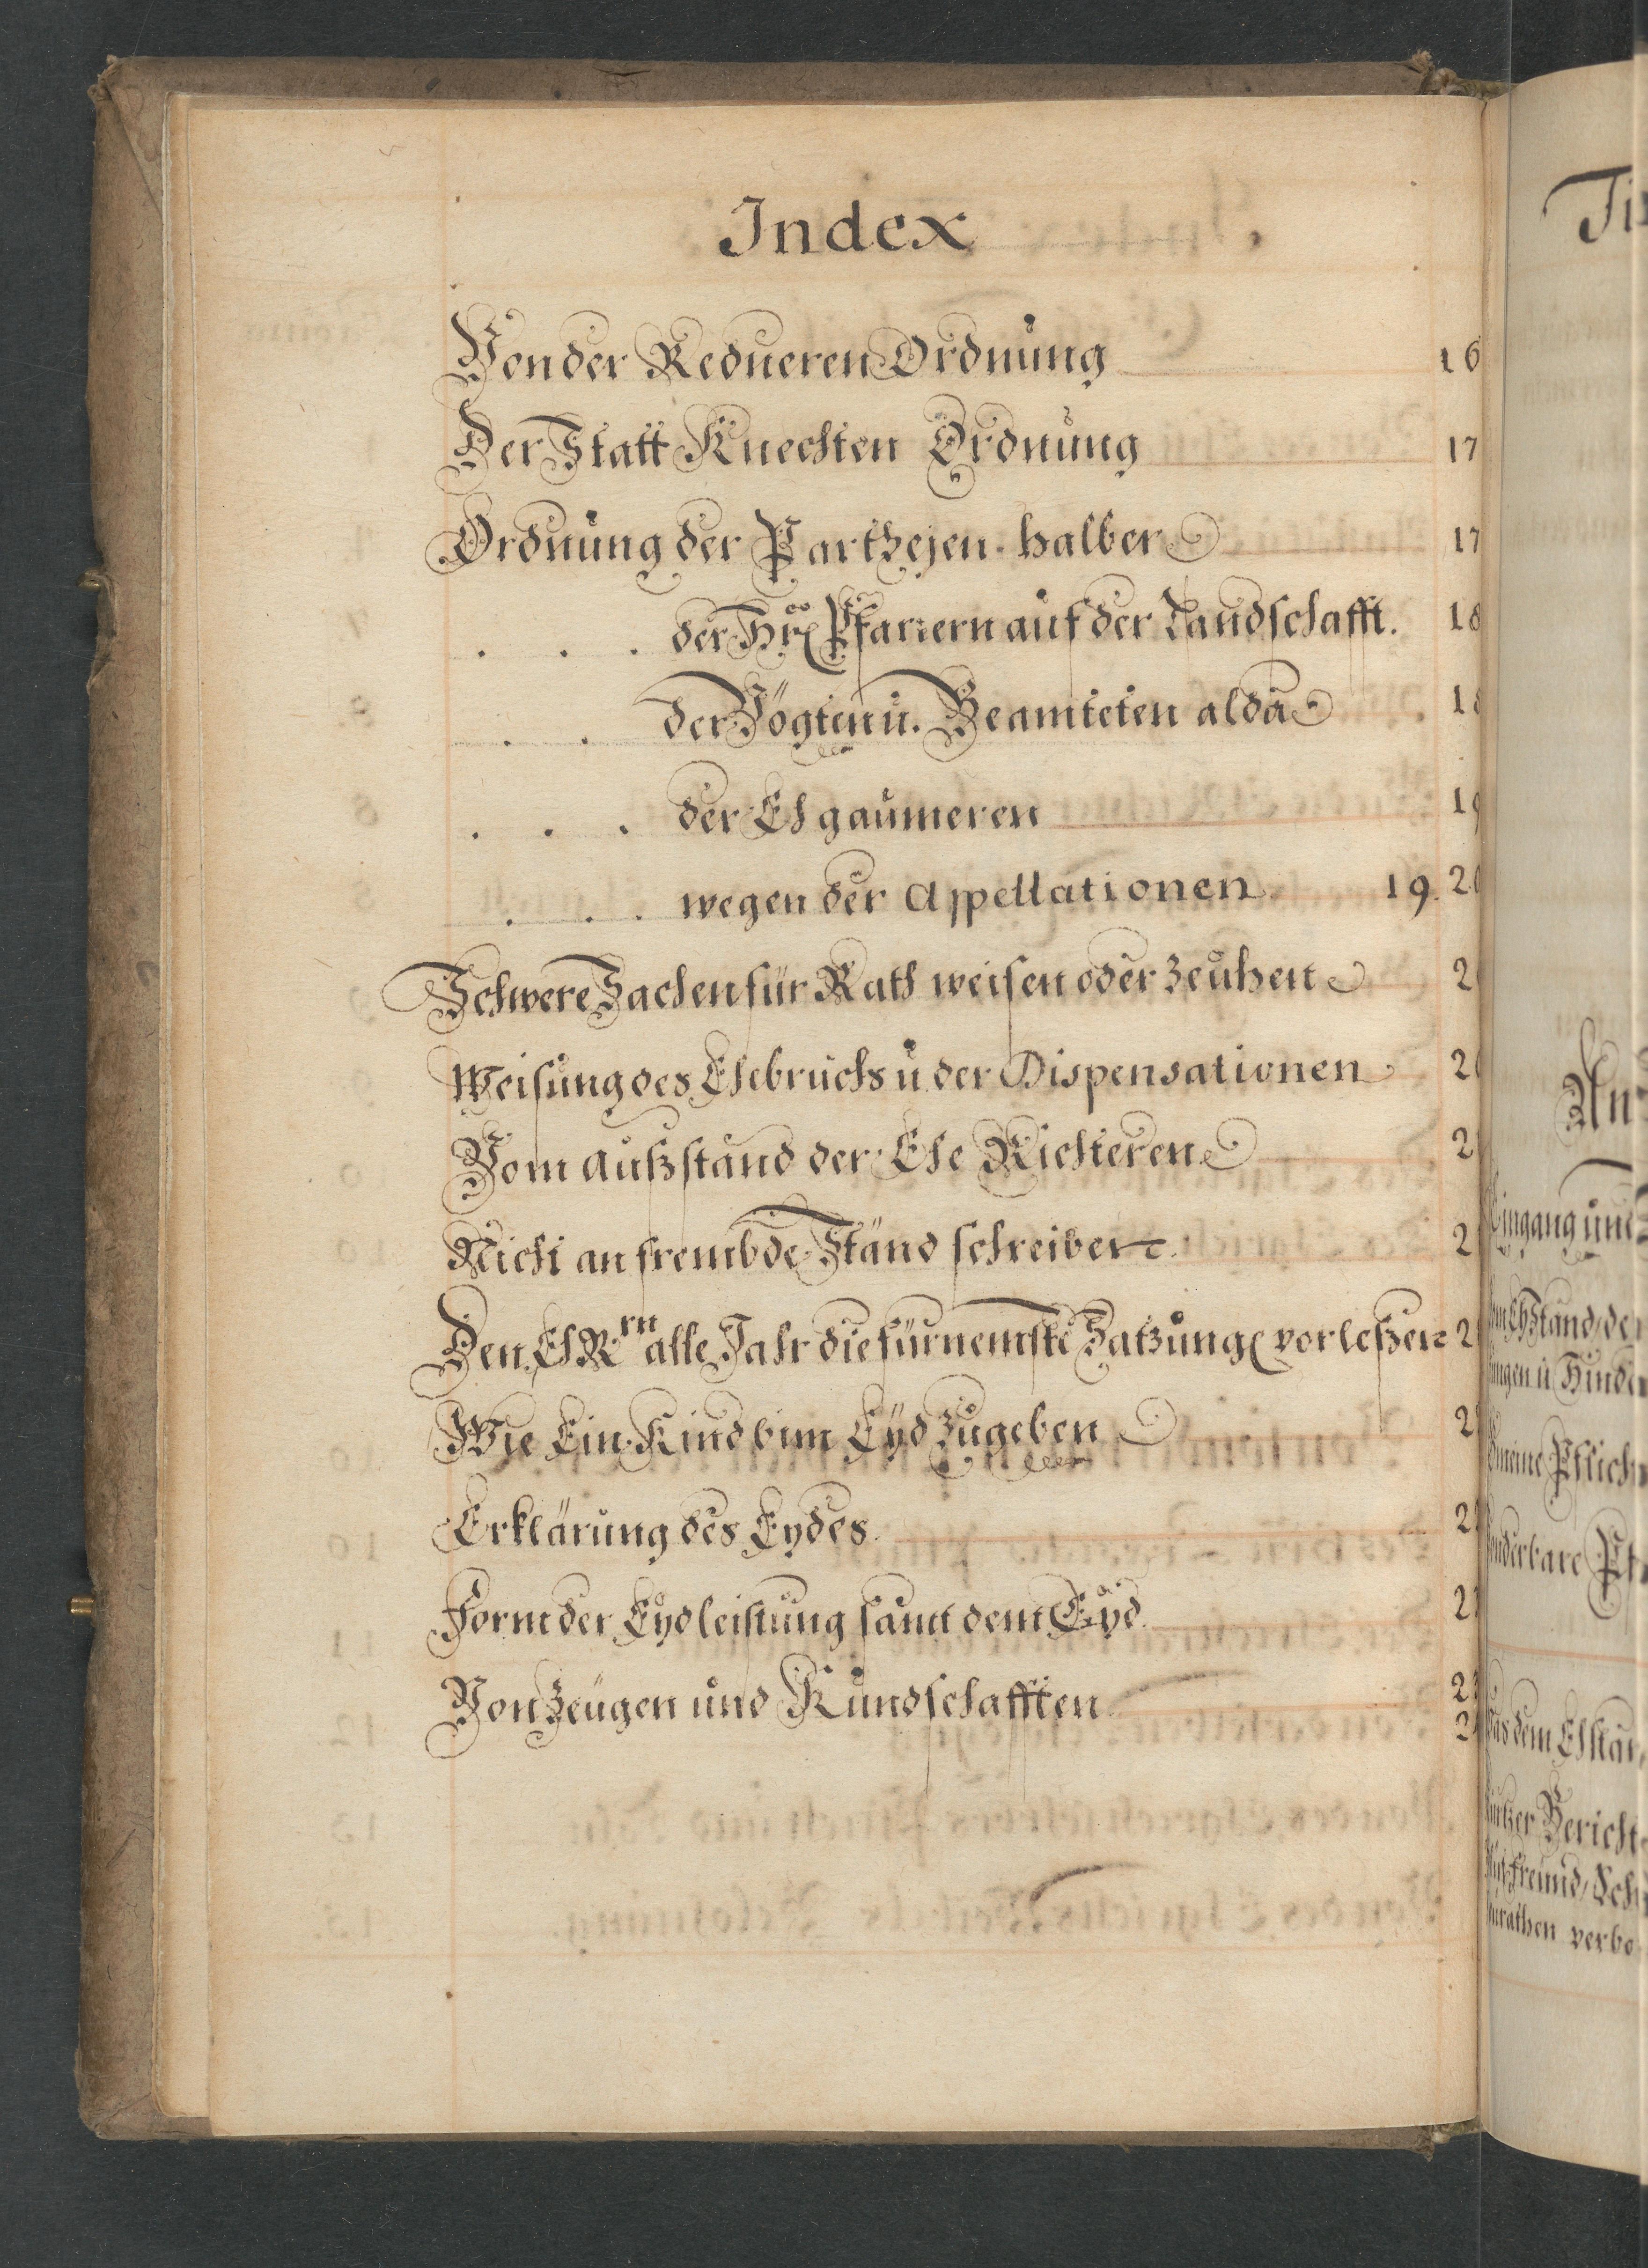 Index
Von der Redneren Ordnung 16
Der Statt Knechten Ordnung 17
Ordnung der Partheyen halber 17
. . . der Hr Pfarrern auf der Landschafft. 18
. . der Vögten u. Beamteten alda 18
. . . der Ehgaumeren 19
. . . wegen der Appellationen 19. 20
Schwere Sachen für Rath weisen oder zeuhen 2
Weisung des Ehebruchs u. der Dispensationen 2
Vom außstand der Ehe Richteren 2
Nicht an frembde Ständ schreiben 2
Den EhRrn alle Jahr die fürnemste Satzung vorleßen 2
Wie Ein Kind bim Eyd zugeben 2
Erklärung des Eydes. 2
Form der Eydleistung samt dem Eyd 2
Von Zeugen und Kundschafften 2
2
Ti
An
Eingang und
Pflich
Bericht
verbo